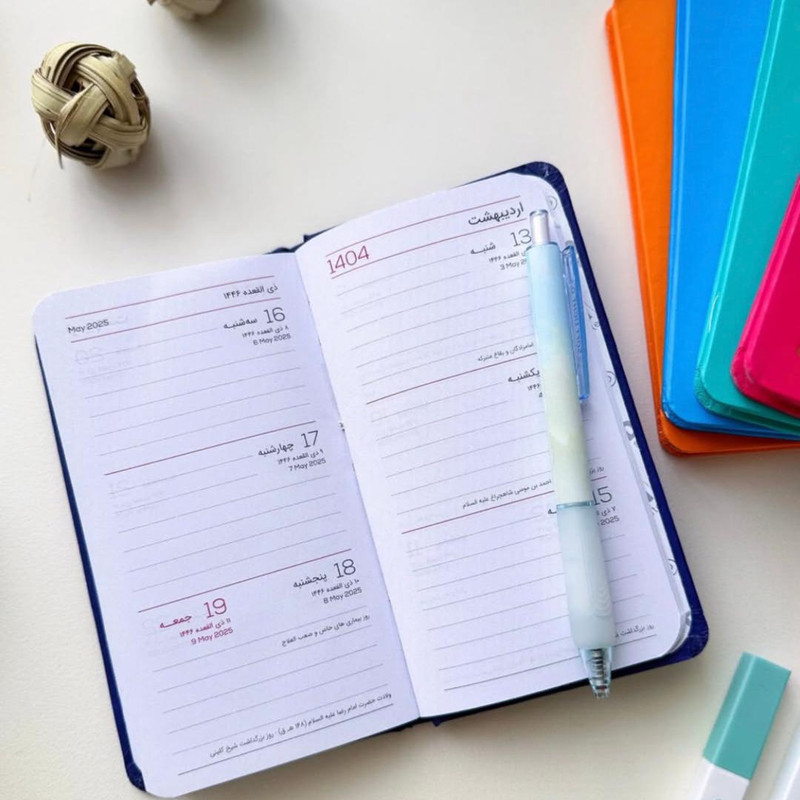 اردیبهشت
1404
13 شنبه
۵ ذی القعده ۱۴۴۶
3 May
امامزادگان و بقاع متبرکه
یکشنبه
احمد بن موسی شاهچراغ علیه السلام
15
2025
روز بزرگداشت
ذی القعده ۱۴۴۶
May 2025
16 سه‌شنبه
۸ ذی القعده ۱۴۴۶
6 May 2025
17 چهارشنبه
۹ ذی القعده ۱۴۴۶
7 May 2025
18 پنجشنبه
۱۰ ذی القعده ۱۴۴۶
8 May 2025
روز بیماری های خاص و صعب العلاج
19 جمعه
۱۱ ذی القعده ۱۴۴۶
9 May 2025
ولادت حضرت امام رضا علیه السلام (۱۴۸ هـ ق) - روز بزرگداشت شیخ کلینی